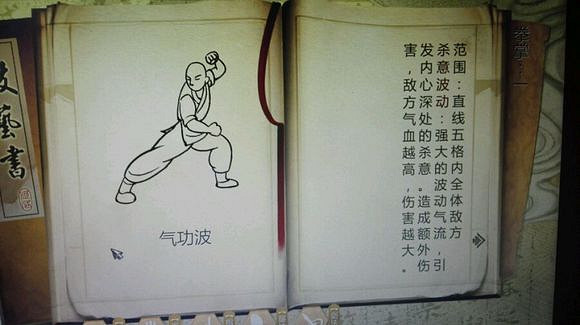 藝書
气功波
拳掌：一
范围：直线五格内全体敌方
杀意波动：强大的波动气流，引
发内心深处的杀意。造成额外伤
害，敌方气血越高，伤害越大。